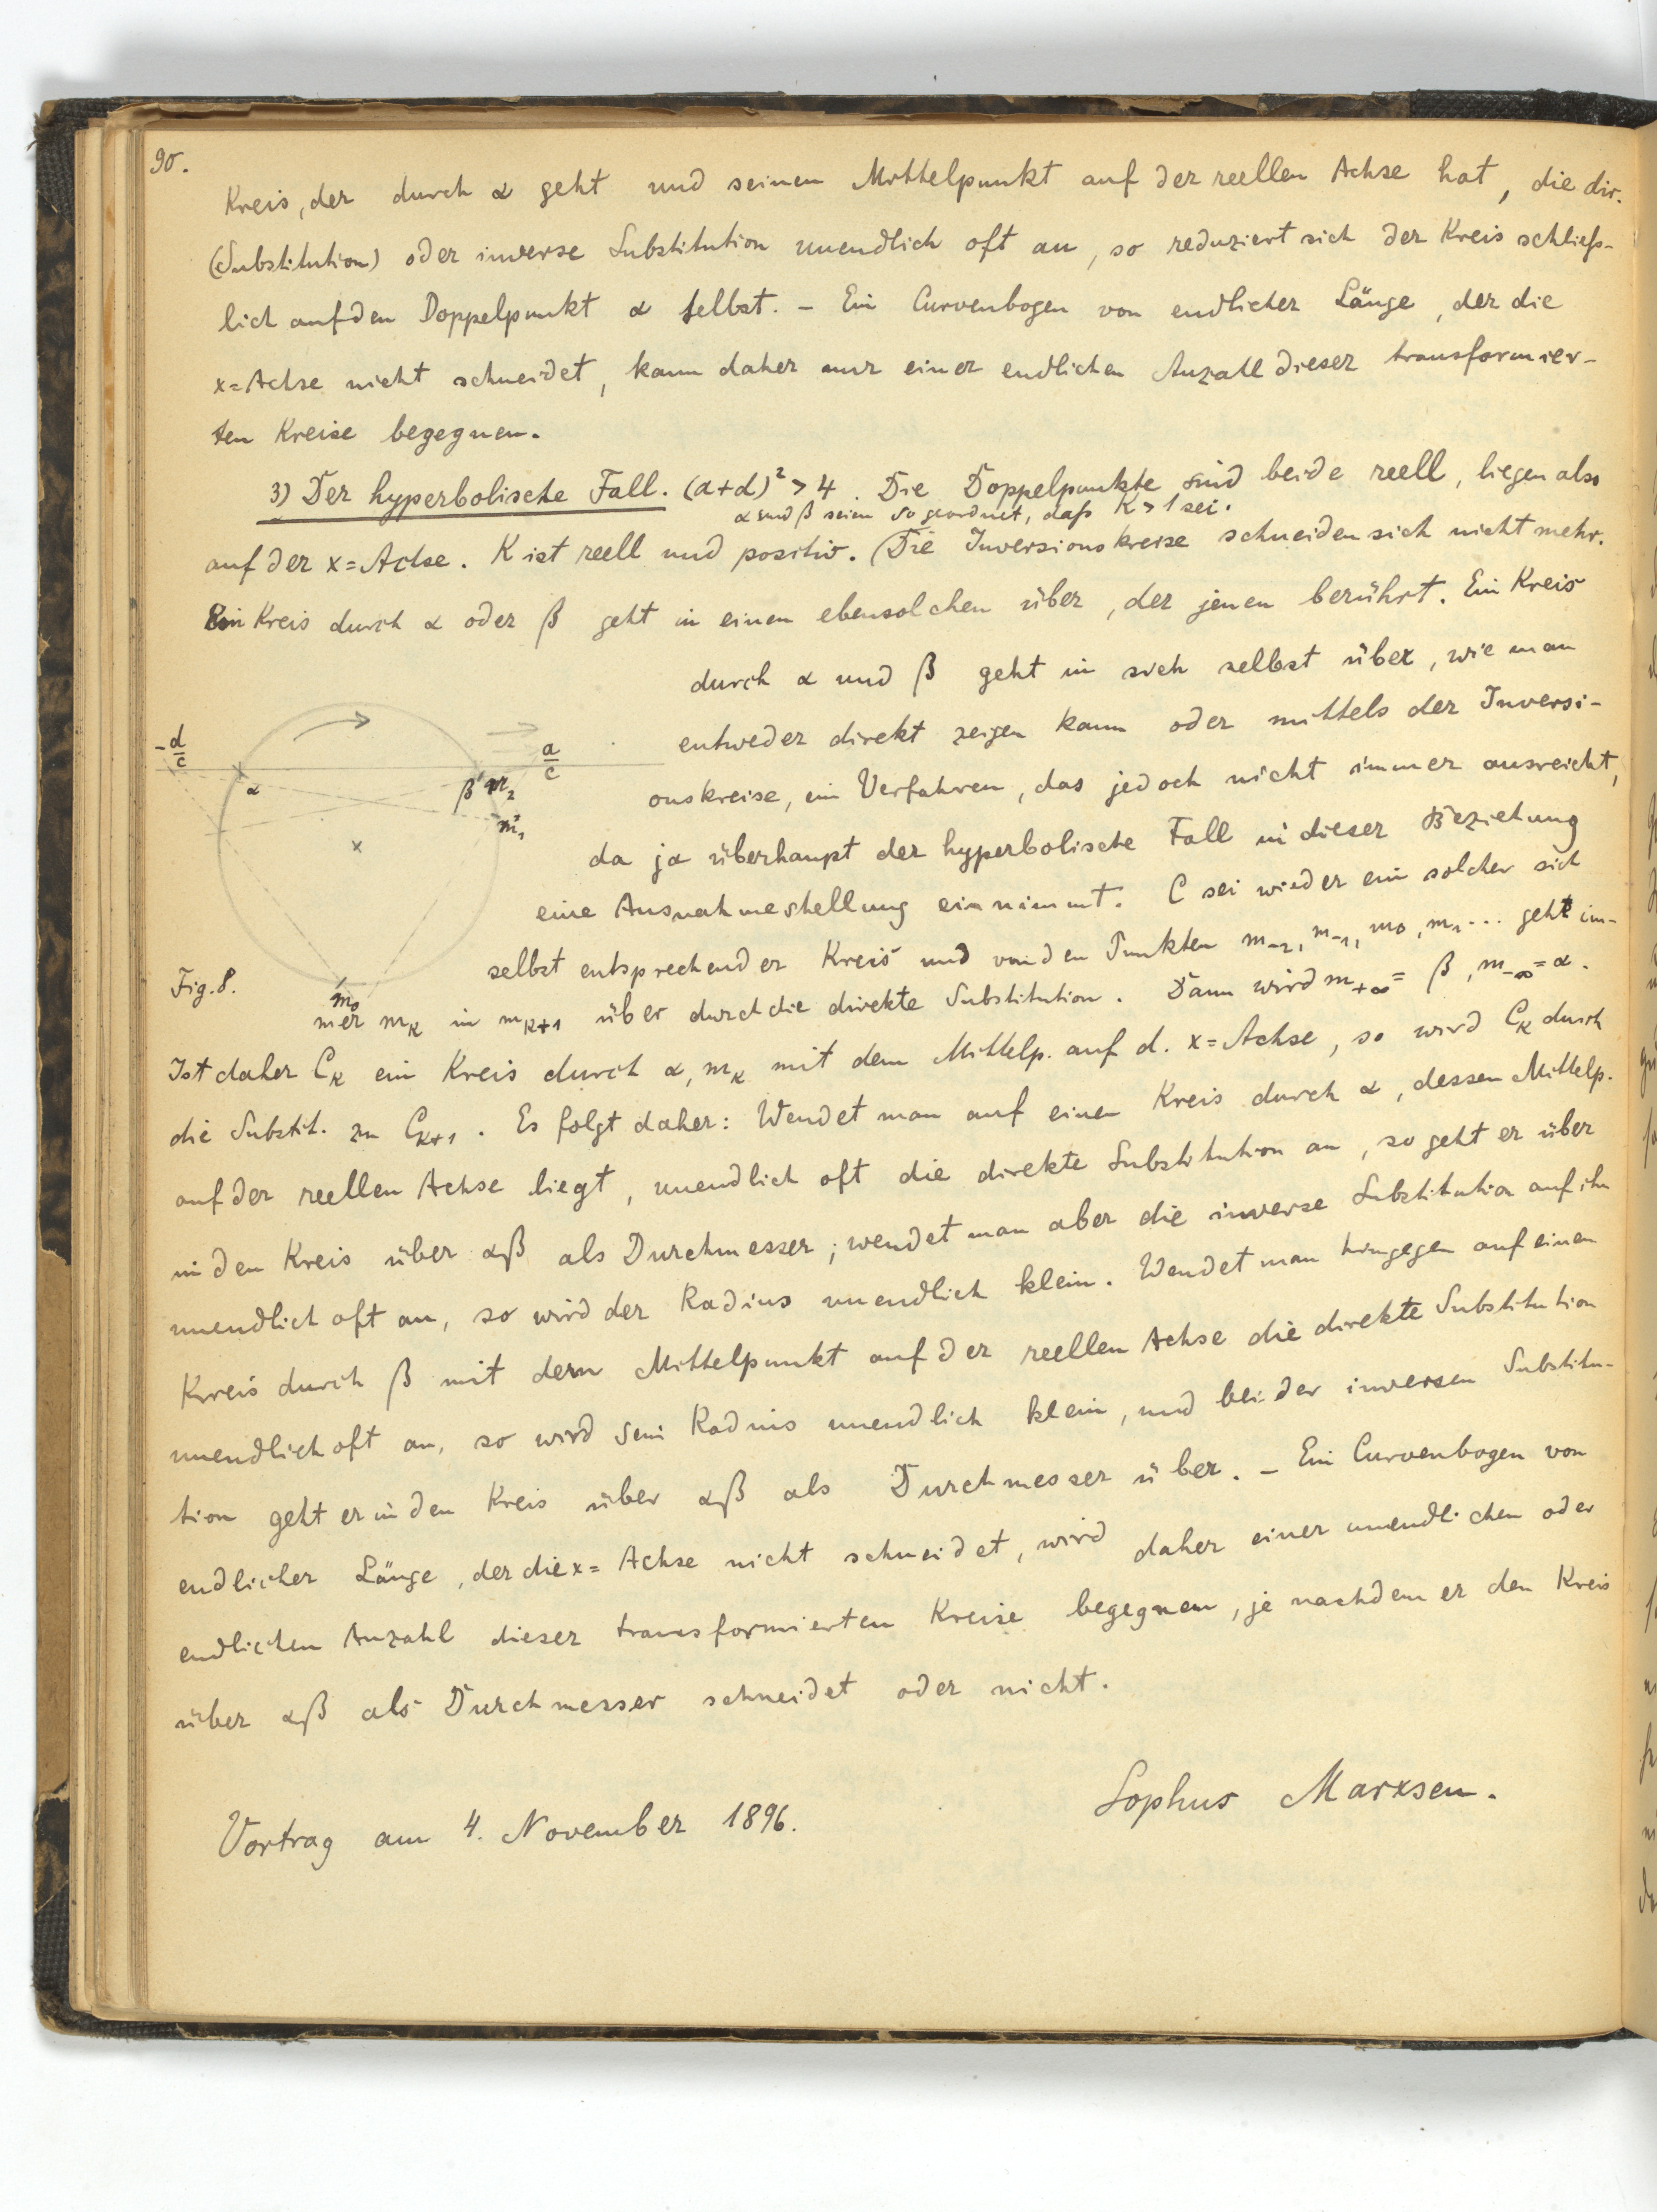 90.
Kreis, der durch α geht und seinen Mittelpunkt auf der reellen Achse hat, die dir.
(Substitution) oder inverse Substitution unendlich oft an, so reduziert sich der Kreis schließ-
lich auf den Doppelpunkt α selbst. – Ein Curvenbogen von endlicher Länge, der die
x=Achse nicht schneidet, kann daher nur einer endlichen Anzahl dieser transformier-
ten Kreise begegnen.
3) Der hyperbolische Fall. (a+d)² > 4. Die Doppelpunkte sind beide reell, liegen also
α und β seien so geordnet, daß K > 1 sei.
auf der x=Achse. K ist reell und positiv. (Die Inversionskreise schneiden sich nicht mehr.
Ein Kreis durch α oder β geht in einen ebensolchen über, der jenen berührt. Ein Kreis
durch α und β geht in sich selbst über, wie man
entweder direkt zeigen kann oder mittels der Inversi-
onskreise, ein Verfahren, das jedoch nicht immer ausreicht,
da ja überhaupt der hyperbolische Fall in dieser Beziehung
eine Ausnahmestellung einnimmt. C sei wieder ein solcher sich
selbst entsprechender Kreis und von den Punkten m₋₂, m₋₁, m₀, m₁... geht im-
mer mₖ in mₖ₊₁ über durch die direkte Substitution. Dann wird m₊∞ = β, m₋∞ = α.
-d/c
α
β
m₂
a/c
m₁
m₀
Fig. 8.
Ist daher Cₖ ein Kreis durch α, mₖ mit dem Mittelp. auf d. x=Achse, so wird Cₖ durch
die Substit. zu Cₖ₊₁. Es folgt daher: Wendet man auf einen Kreis durch α, dessen Mittelp.
auf der reellen Achse liegt, unendlich oft die direkte Substitution an, so geht er über
in den Kreis über αβ als Durchmesser; wendet man aber die inverse Substitution auf ihn
unendlich oft an, so wird der Radius unendlich klein. Wendet man hingegen auf einen
Kreis durch β mit dem Mittelpunkt auf der reellen Achse die direkte Substitution
unendlich oft an, so wird sein Radius unendlich klein, und bei der inversen Substitu-
tion geht er in den Kreis über αβ als Durchmesser über. – Ein Curvenbogen von
endlicher Länge, der die x=Achse nicht schneidet, wird daher einer unendlichen oder
endlichen Anzahl dieser transformierten Kreise begegnen, je nachdem er den Kreis
über αβ als Durchmesser schneidet oder nicht.
Vortrag am 4. November 1896.
Sophus Marxsen.